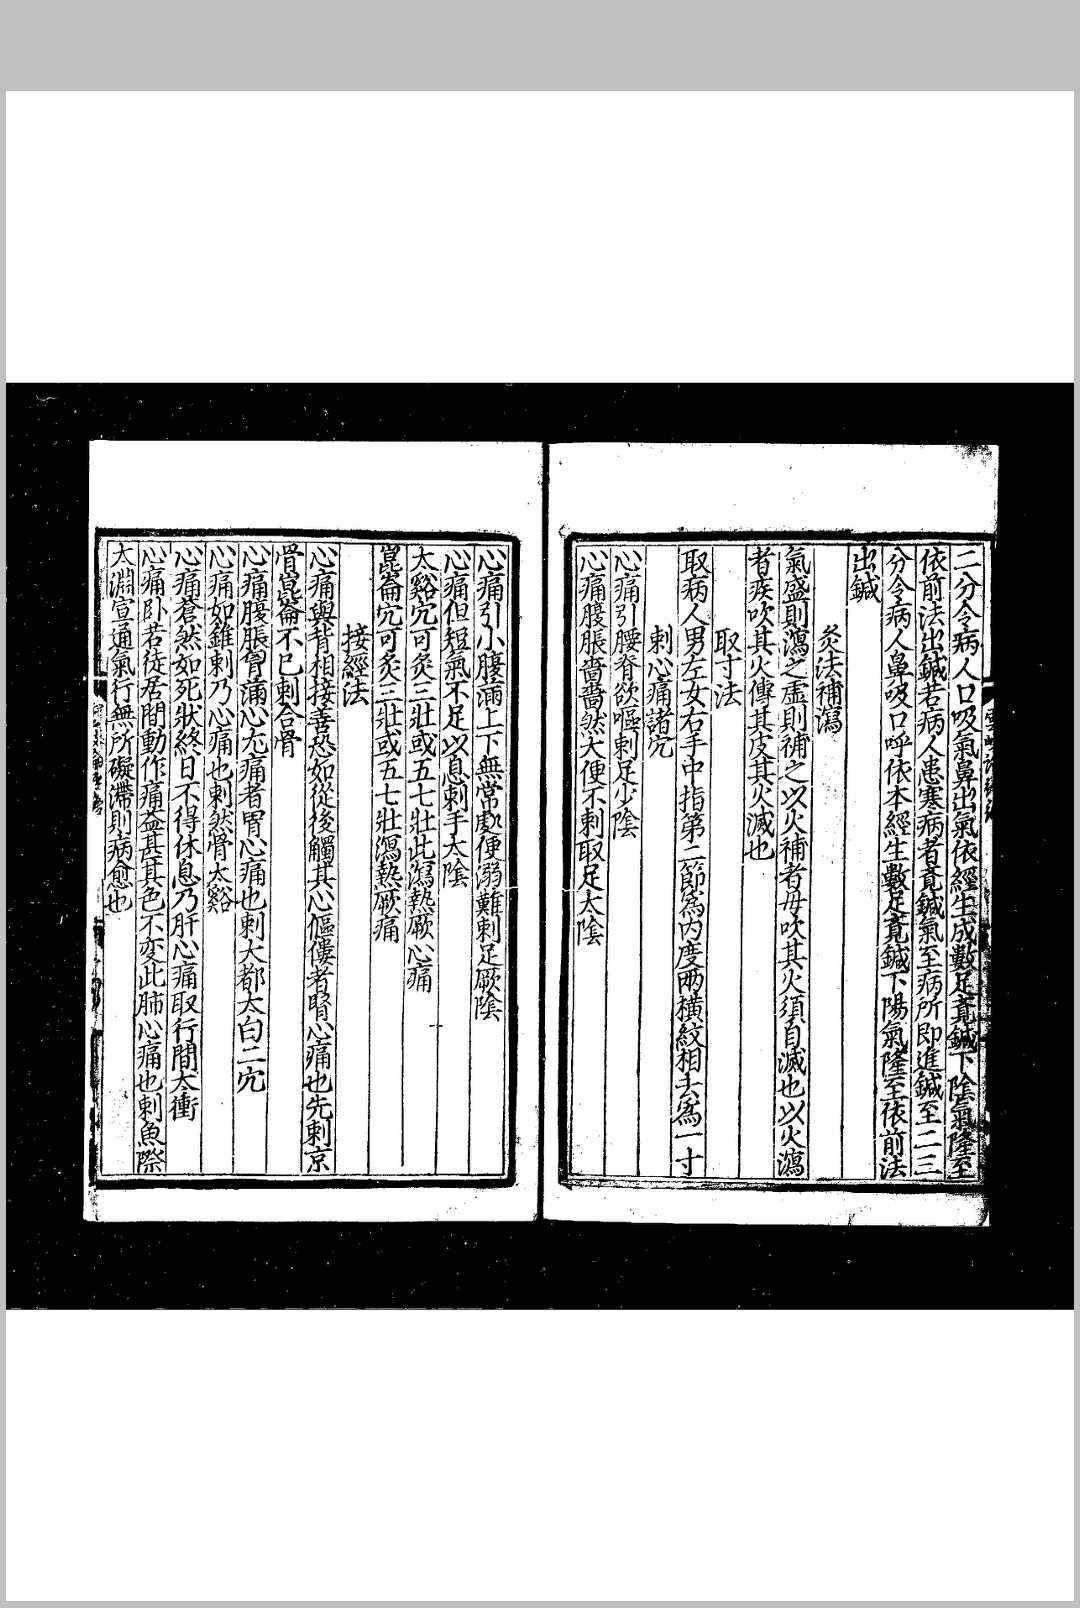 二分令病人口吸氣鼻出氣依經生成數足竟鍼下陰氣隆至
依前法出鍼若病人患寒病者竟鍼氣至病所即進鍼至二三
分令病人鼻吸口呼依本經生數足竟鍼下陽氣隆至依前法
出鍼
灸法補瀉
氣盛則瀉之虛則補之以火補者毋吹其火須自滅也以火瀉
者疾吹其火傳其皮其火滅也
取寸法
取病人男左女右手中指第二節為内度兩橫紋相去為一寸
刺心痛諸穴
心痛引腰脊欲嘔刺足少陰
心痛腹脹嗇嗇然大便不剌取足太陰
心痛引小腹滿上下無常處便溺難刺足厥陰
心痛但短氣不足以息刺手太陰
太谿穴可灸三壯或五七壯此瀉熱厥心痛
崑崙穴可灸三壯或五七壯瀉熱厥痛
接經法
心痛與背相接善恐如從後觸其心傴僂者腎心痛也先刺京
骨崑崙不已刺合骨
心痛腹脹胷滿心尢痛者胃心痛也刺大都太白二穴
心痛如錐刺乃心痛也刺然骨太谿
心痛蒼然如死狀終日不得休息乃肝心痛取行間太衝
心痛卧若徒居間動作痛益甚其色不变此肺心痛也刺魚際
太淵宣通氣行無所礙滯則病愈也